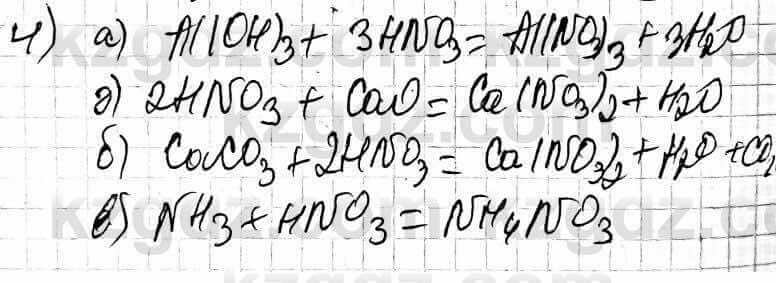 4) а) Al(OH)3 + 3HNO3 = Al(NO3)3 + 3H2O
д) 2HNO3 + CaO = Ca(NO3)2 + H2O
б) CaCO3 + 2HNO3 = Ca(NO3)2 + H2O + CO2
в) NH3 + HNO3 = NH4NO3